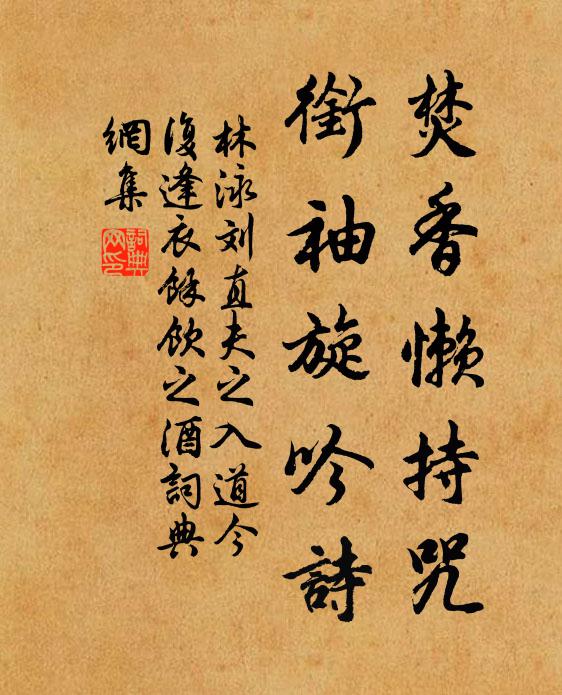 焚香懒持咒
衔袖旋吟詩
林泳刘直夫之入道今
復逢衣餘飲之酒詞典
網集
詞典
网印